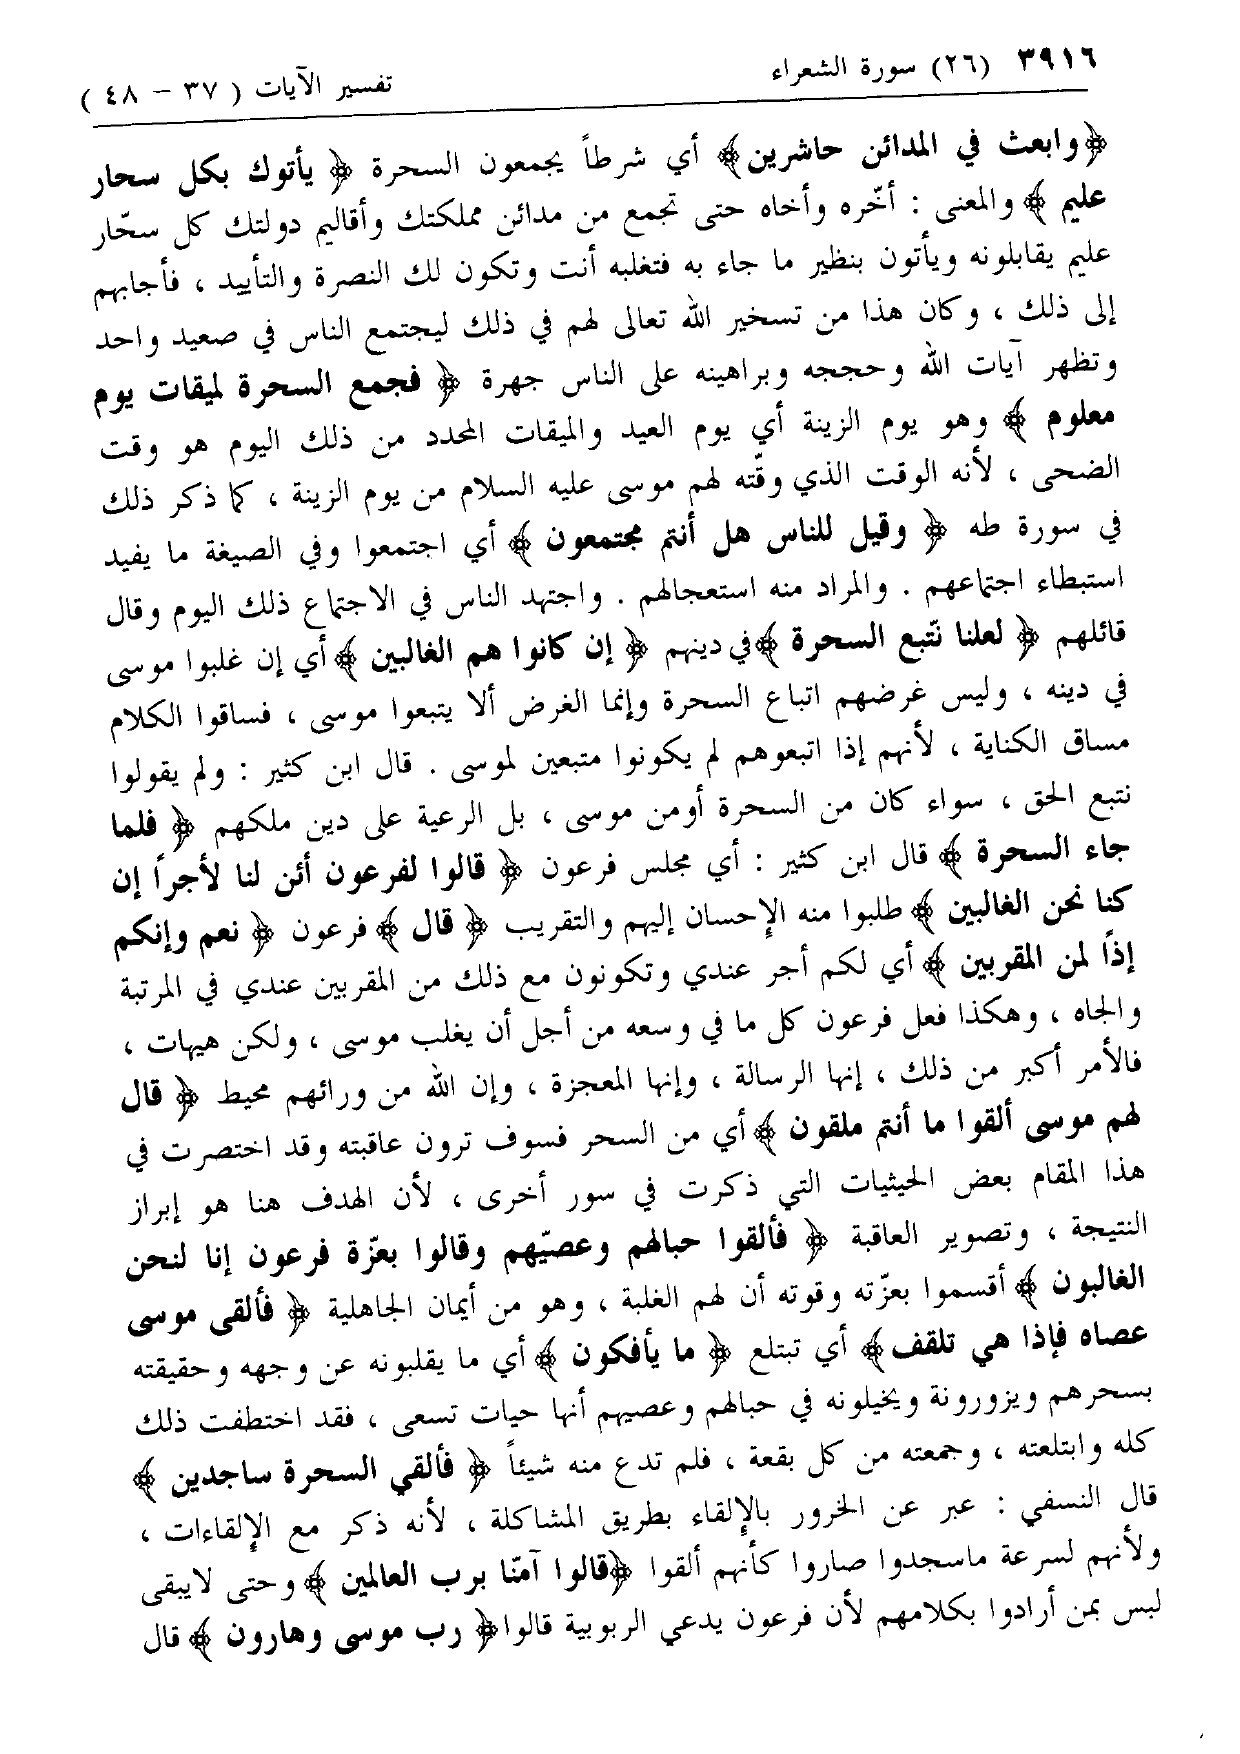 ٣٩١٦ (٢٦) سورة الشعراء تفسير الآيات ( ٣٧ – ٤٨ )
﴿وابعث في المدائن حاشرين﴾ أي شرطاً يجمعون السحرة ﴿ يأتوك بكل سحار
عليم ﴾ والمعنى : أخّره وأخاه حتى تجمع من مدائن مملكتك وأقاليم دولتك كل سحّار
عليم يقابلونه ويأتون بنظير ما جاء به فتغلبه أنت وتكون لك النصرة والتأييد ، فأجابهم
إلى ذلك ، وكان هذا من تسخير الله تعالى لهم في ذلك ليجتمع الناس في صعيد واحد
وتظهر آيات الله وحججه وبراهينه على الناس جهرة ﴿ فجمع السحرة لميقات يوم
معلوم ﴾ وهو يوم الزينة أي يوم العيد والميقات المحدد من ذلك اليوم هو وقت
الضحى ، لأنه الوقت الذي وقّته لهم موسى عليه السلام من يوم الزينة ، كما ذكر ذلك
في سورة طه ﴿ وقيل للناس هل أنتم مجتمعون ﴾ أي اجتمعوا وفي الصيغة ما يفيد
استبطاء اجتماعهم . والمراد منه استعجالهم . واجتهد الناس في الاجتماع ذلك اليوم وقال
قائلهم ﴿ لعلنا نتّبع السحرة ﴾ في دينهم ﴿ إن كانوا هم الغالبين ﴾ أي إن غلبوا موسى
في دينه ، وليس غرضهم اتباع السحرة وإنما الغرض ألا يتبعوا موسى ، فساقوا الكلام
مساق الكناية ، لأنهم إذا اتبعوهم لم يكونوا متبعين لموسى . قال ابن كثير : ولم يقولوا
نتبع الحق ، سواء كان من السحرة أومن موسى ، بل الرعية على دين ملكهم ﴿ فلما
جاء السحرة ﴾ قال ابن كثير : أي مجلس فرعون ﴿ قالوا لفرعون أئن لنا لأجراً إن
كنا نحن الغالبين ﴾ طلبوا منه الإحسان إليهم والتقريب ﴿ قال ﴾ فرعون ﴿ نعم وإنكم
إذاً لمن المقربين ﴾ أي لكم أجر عندي وتكونون مع ذلك من المقربين عندي في المرتبة
والجاه ، وهكذا فعل فرعون كل ما في وسعه من أجل أن يغلب موسى ، ولكن هيهات ،
فالأمر أكبر من ذلك ، إنها الرسالة ، وإنها المعجزة ، وإن الله من ورائهم محيط ﴿ قال
لهم موسى ألقوا ما أنتم ملقون ﴾ أي من السحر فسوف ترون عاقبته وقد اختصرت في
هذا المقام بعض الحيثيات التي ذكرت في سور أخرى ، لأن الهدف هنا هو إبراز
النتيجة ، وتصوير العاقبة ﴿ فألقوا حبالهم وعصيّهم وقالوا بعزّة فرعون إنا لنحن
الغالبون ﴾ أقسموا بعزّته وقوته أن لهم الغلبة ، وهو من أيمان الجاهلية ﴿ فألقى موسى
عصاه فإذا هي تلقف﴾ أي تبتلع ﴿ ما يأفكون ﴾ أي ما يقلبونه عن وجهه وحقيقته
بسحرهم ويزورونة ويخيلونه في حبالهم وعصيهم أنها حيات تسعى ، فقد اختطفت ذلك
كله وابتلعته ، وجمعته من كل بقعة ، فلم تدع منه شيئاً ﴿ فألقي السحرة ساجدين ﴾
قال النسفي : عبر عن الخرور بالإلقاء بطريق المشاكلة ، لأنه ذكر مع الإلقاءات ،
ولأنهم لسرعة ماسجدوا صاروا كأنهم ألقوا ﴿قالوا آمنّا برب العالمين ﴾ وحتى لايبقى
لبس بمن أرادوا بكلامهم لأن فرعون يدعي الربوبية قالوا﴿ رب موسى وهارون ﴾ قال